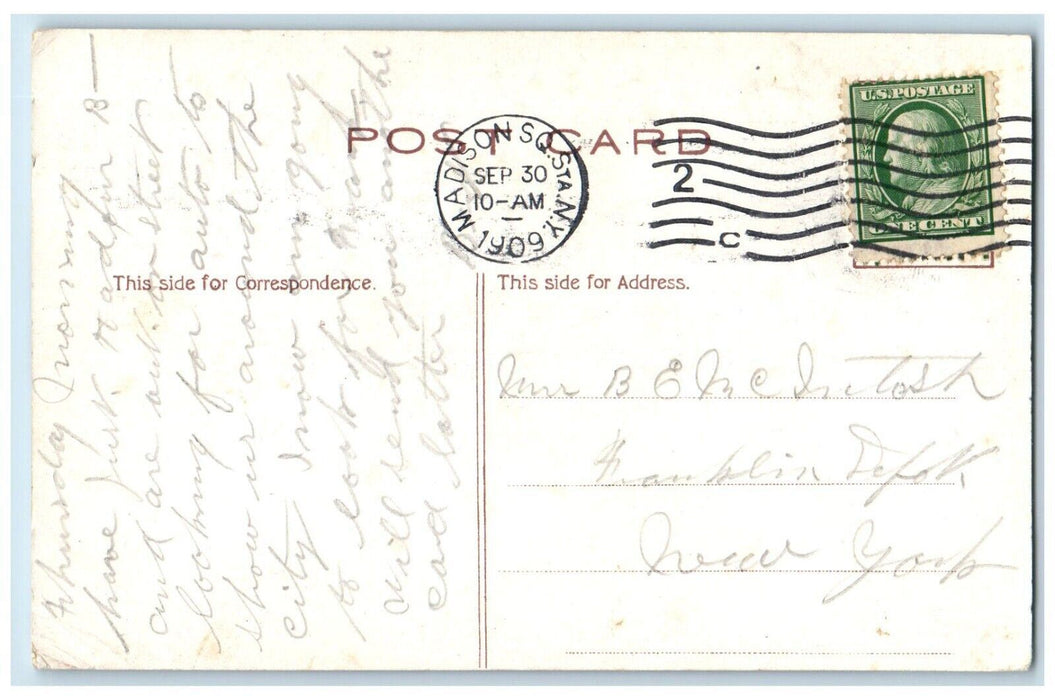 POST CARD
MADISON SQ. STA. N.Y.
SEP 30
10-AM
1909
2
C
U.S. POSTAGE
ONE CENT
This side for Correspondence.
This side for Address.
Thursday morning 8 —
have just had our
and are out on street
looking for auto to
show us around the
city now am going
to look for
will send you another
card later
B E McIntosh
Franklin Depot
New York